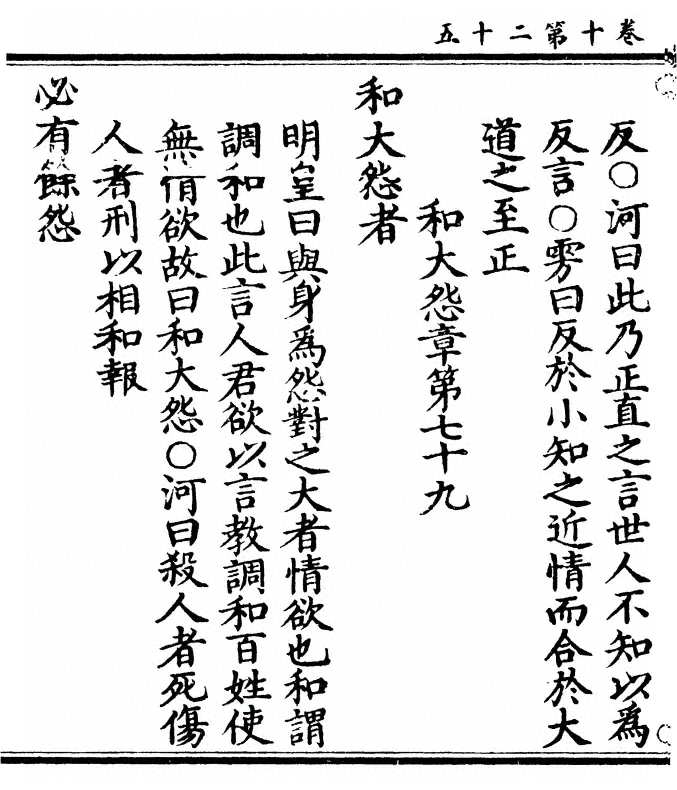 卷十第二十五
反○河曰此乃正直之言世人不知以爲
反言○雱曰反於小知之近情而合於大
道之至正
和大怨章第七十九
和大怨者
明皇曰與身爲怨對之大者情欲也和謂
調和也此言人君欲以言教調和百姓使
無情欲故曰和大怨○河曰殺人者死傷
人者刑以相和報
必有餘怨